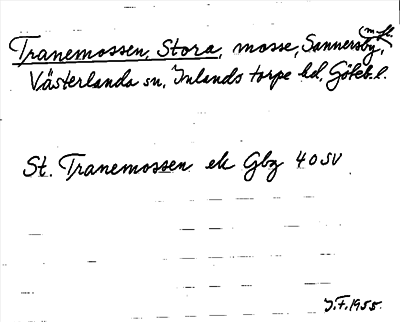 Tranemossen, Stora, mosse, Sannersby, m.fl.
Västerlanda sn, Inlands torpe hd, Göteb.l.
St. Tranemossen ek Gbg 40 SV
J.F. 1955.